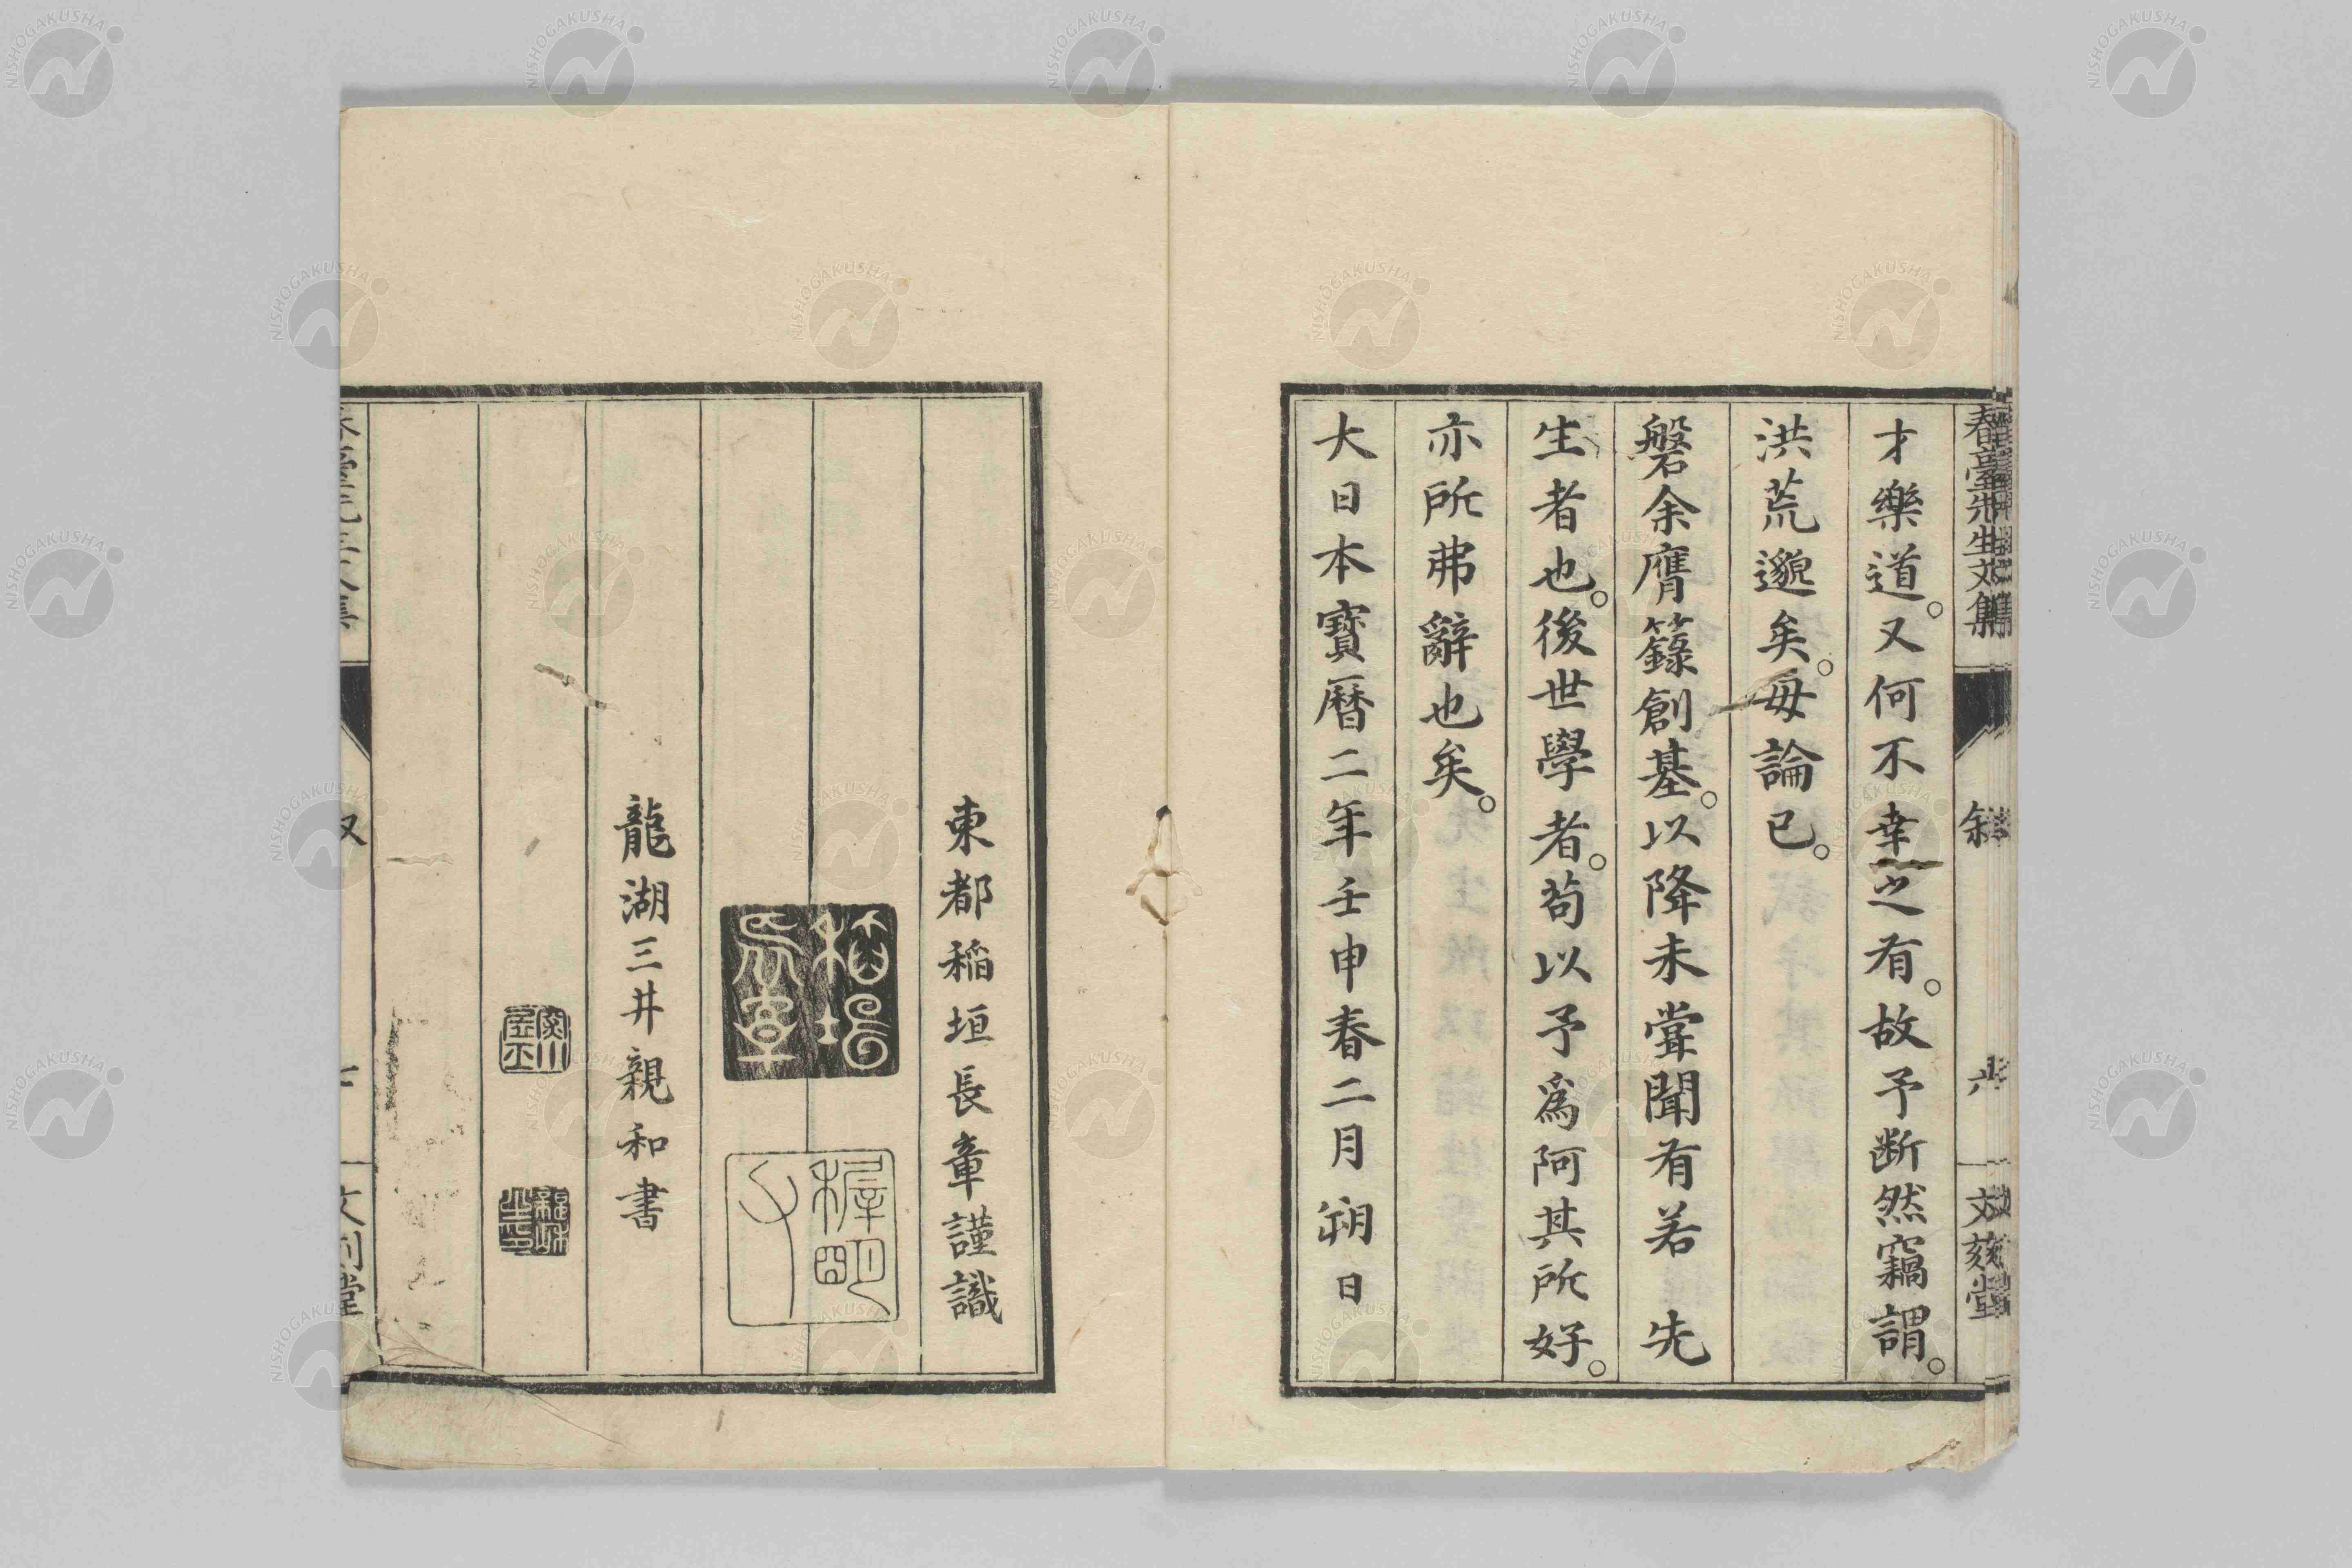 春臺先生文集
敘
六
文刻堂
才樂道。又何不幸之有。故予断然竊謂。
洪荒邈矣。毋論已。
磐余膺籙創基。以降未甞聞有若 先
生者也。後世學者。苟以予爲阿其所好。
亦所弗辭也矣。
大日本寶曆二年壬申春二月朔日
東都稲垣長章謹識
稲垣長章
穉明父
龍湖三井親和書
親和
文刻堂
NISHOGAKUSHA